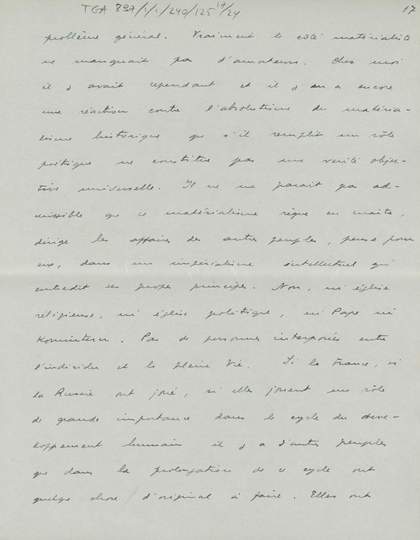 TGA 897/1/1/240/125 19/24
17
problème général. Vraiment le côté matérialiste
ne manquait pas d'amateurs. Chez moi
il y avait cependant et il y en a encore
une réaction contre l'absolutisme du matéria-
lisme historique qui s'il remplit un rôle
politique ne constitue pas une verité objec-
tive universelle. Il ne me parait pas ad-
missible que ce matérialisme règne en maître,
dirige les affaires des autres peuples, pense pour
eux, dans un impérialisme intellectuel qui
contredit ses propres principes. Non, ni église
religieuse, ni église politique, ni Pape ni
Komintern. Pas de personnes interposées entre
l'individu et la pleine Vie. Si la France, si
la Russie ont joué, si elles jouent un rôle
de grande importance dans le cycle du deve-
loppement humain il y a d'autres peuples
que dans la prolongation de ce cycle ont
quelque chose d'original à faire. Elles ont